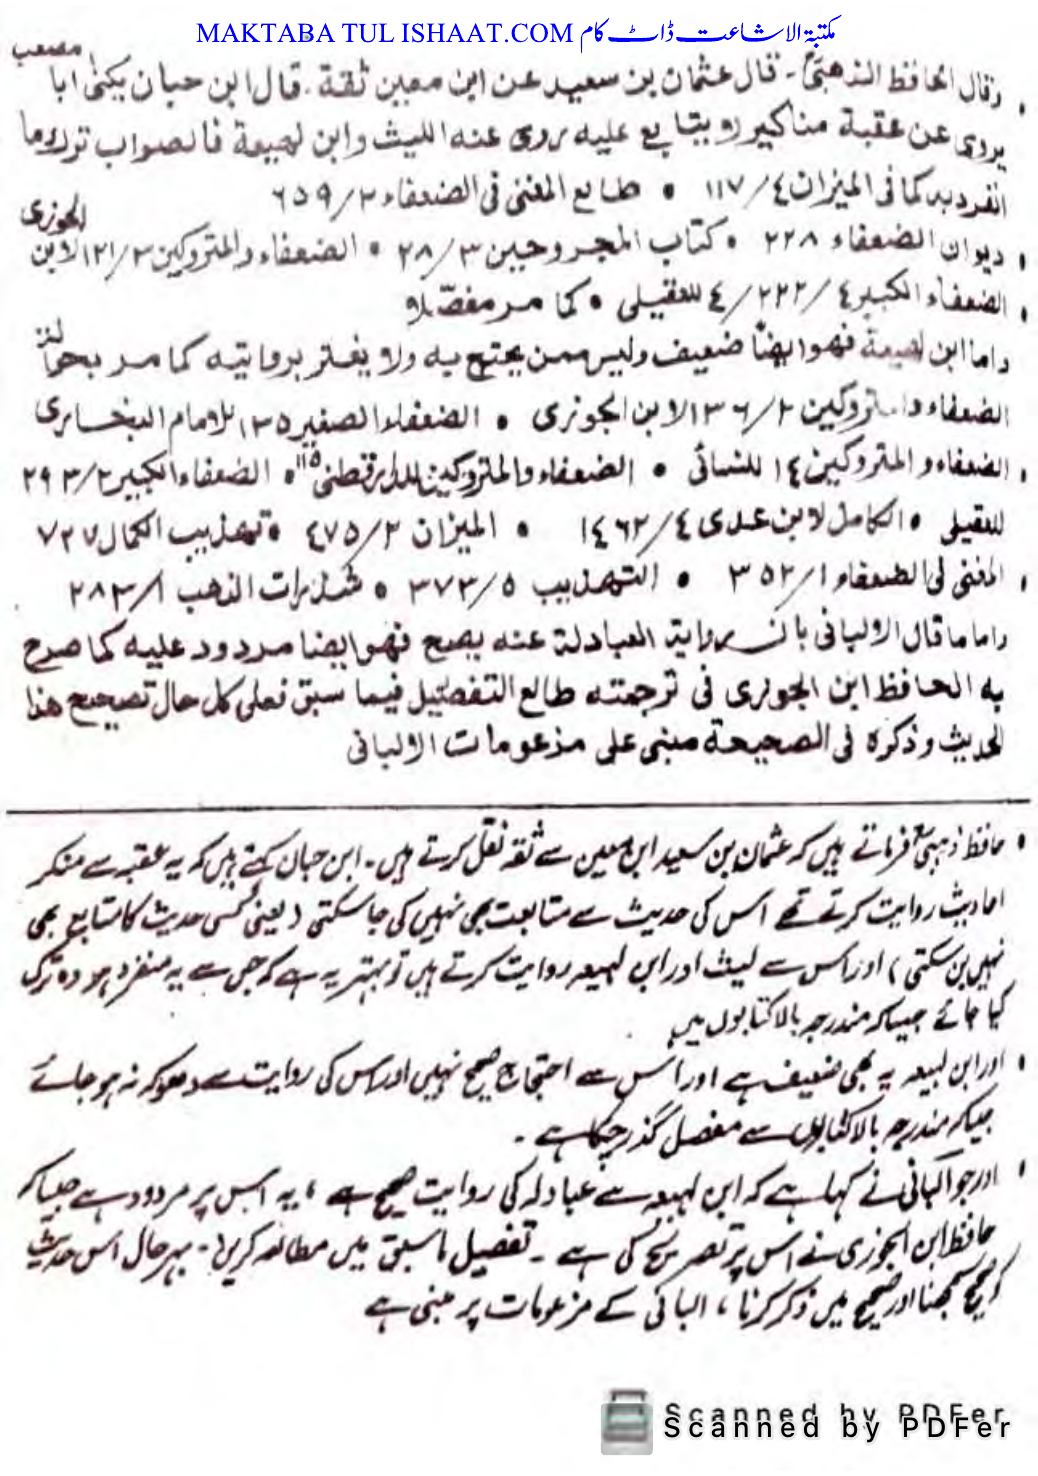 MAKTABA TUL ISHAAT.COM مکتبۃ الاشاعت ڈاٹ کام
وقال الحافظ الذهبیؒ۔ قال عثمان بن سعيد عن ابن معين ثقة۔ قال ابن حبان یکنی ابا مصعب
یروی عن عقبة مناكير لا يتابع عليه روى عنه الليث وابن لهيعة فالصواب ترك ما
انفرد به كما فی الميزان ٤/١١٧ • طالع المغنى فى الضعفاء ٢/٦٥٩
• ديوان الضعفاء ٢٢٨ • كتاب المجروحين ٣/٢٨ • الضعفاء والمتروكين ٣/١٢١ لابن الجوزی
• الضعفاء الكبير ٤/٢٢٢ للعقيلى • كما مر مفصلا
واما ابن لهيعة فهو ايضًا ضعيف وليس ممن يحتج به ولا يغتر بروايته كما مر بحواله
الضعفاء والمتروكين ٢/١٣٦ لابن الجوزى • الضعفاء الصغير ١٣٥ للامام البخارى
• الضعفاء والمتروكين ١٤ للنسائى • الضعفاء والمتروكين للدارقطنى ١١٥ • الضعفاء الكبير ٢/٢٩٣
للعقيلى • الكامل لابن عدى ٤/١٤٦٢ • الميزان ٢/٤٧٥ • تهذيب الكمال ٧٢٧
• المغنى فى الضعفاء ١/٣٥٢ • التهذيب ٥/٣٧٣ • شذرات الذهب ١/٢٨٣
واما ما قال الالبانى بان رواية العبادلة عنه يصح فهو ايضا مردود عليه كما صرح
به الحافظ ابن الجوزى فى ترجمته طالع التفصيل فيما سبق فعلى كل حال تصحيح هذا
الحديث وذكره فى الصحيحة مبنى على مزعومات الالبانى
• حافظ ذہبیؒ فرماتے ہیں کہ عثمان بن سعید ابن معین سے ثقہ نقل کرتے ہیں۔ ابن حبان کہتے ہیں کہ یہ عقبہ سے منکر
احادیث روایت کرتے تھے اس کی حدیث سے متابعت بھی نہیں کی جا سکتی (یعنی کسی حدیث کا متابع بھی
نہیں بن سکتی) اور اس سے لیث اور ابن لہیعہ روایت کرتے ہیں تو بہتر یہ ہے کہ جس سے یہ منفرد ہو وہ ترک
کیا جائے جیسا کہ مندرجہ بالا کتابوں میں
• اور ابن لہیعہ یہ بھی ضعیف ہے اور اس سے احتجاج صحیح نہیں اور اس کی روایت سے دھوکہ نہ ہو جائے
جیسا کہ مندرجہ بالا کتابوں سے مفصل گذر چکا ہے۔
• اور جو البانی نے کہا ہے کہ ابن لہیعہ سے عبادلہ کی روایت صحیح ہے، یہ اس پر مردود ہے جیسا کہ
حافظ ابن الجوزی نے اس پر تصریح کی ہے۔ تفصیل ماسبق میں مطالعہ کریں۔ بہرحال اس حدیث
کو صحیح سمجھنا اور صحیحہ میں ذکر کرنا، البانی کے مزعومات پر مبنی ہے
Scanned by PDFer
Scanned by PDFer